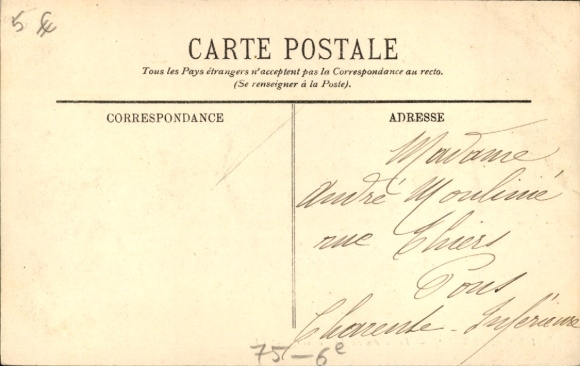 5 &
CARTE POSTALE
Tous les Pays étrangers n'acceptent pas la Correspondance au recto.
(Se renseigner à la Poste).
CORRESPONDANCE
ADRESSE
Madame
André Moulinié
rue Thiers
Pons
Charente-Inférieure
75-6e